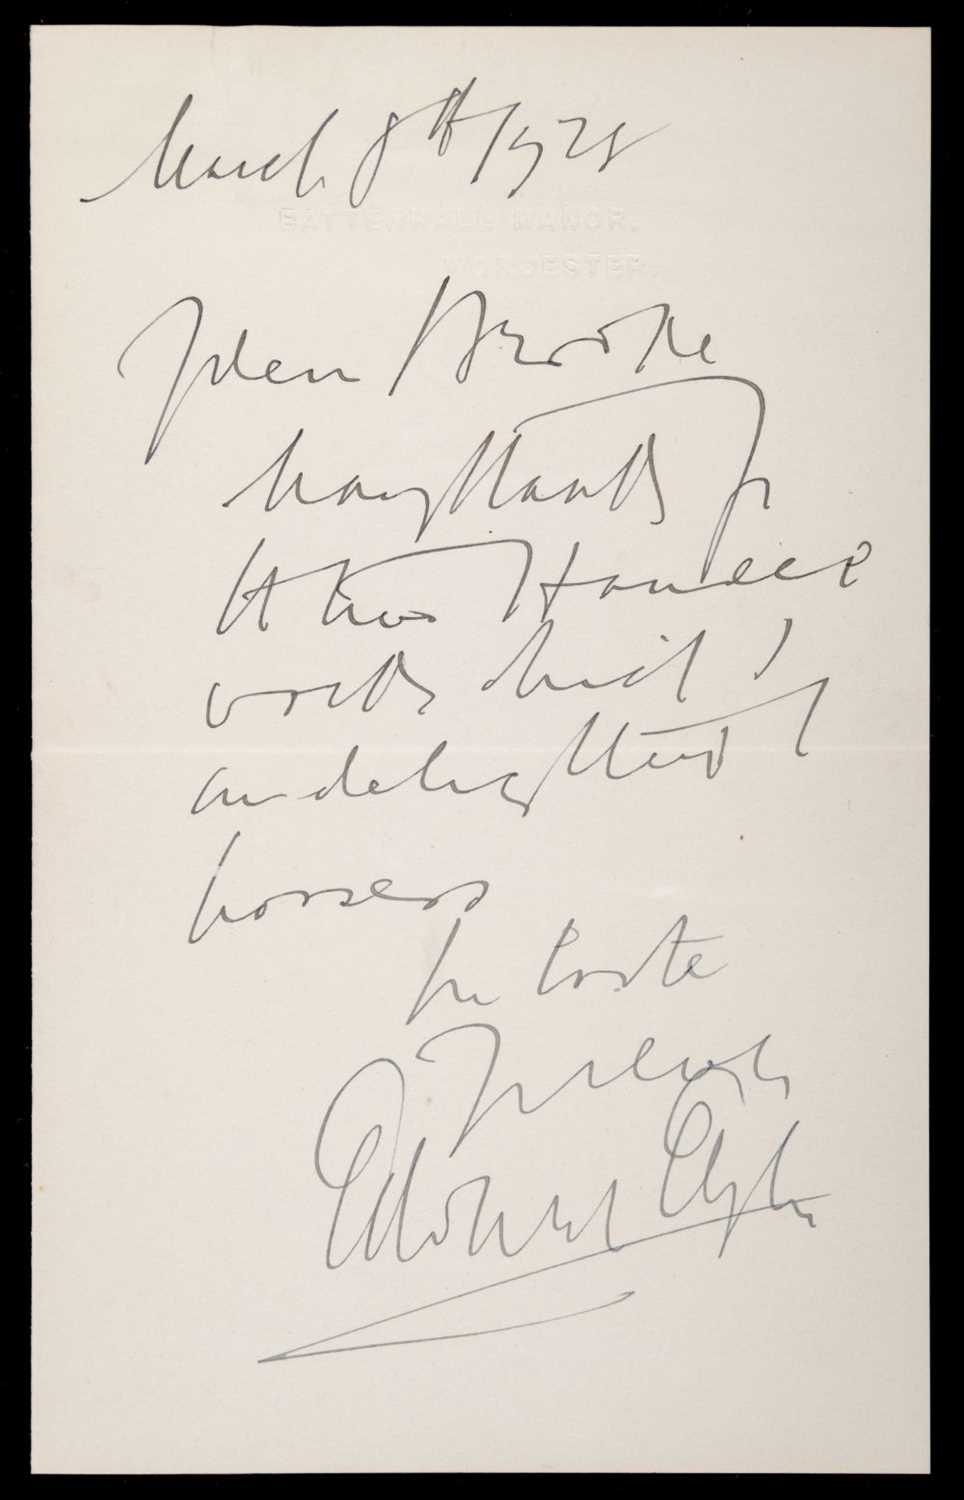 March 8th 1928
BATTENHALL MANOR,
WORCESTER.
Dear Brooke
Many thanks for
the two Handel
works which I
am delighted to
possess
In haste
Yrs ever
Edward Elgar